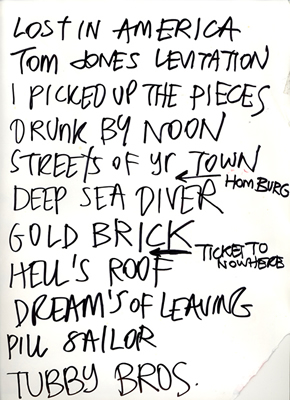 LOST IN AMERICA
TOM JONES LEVITATION
I PICKED UP THE PIECES
DRUNK BY NOON
STREETS OF yr TOWN
HOMBURG
DEEP SEA DIVER
GOLD BRICK
TICKET TO
NOWHERE
HELL'S ROOF
DREAM'S OF LEAVING
PILL SAILOR
TUBBY BROS.